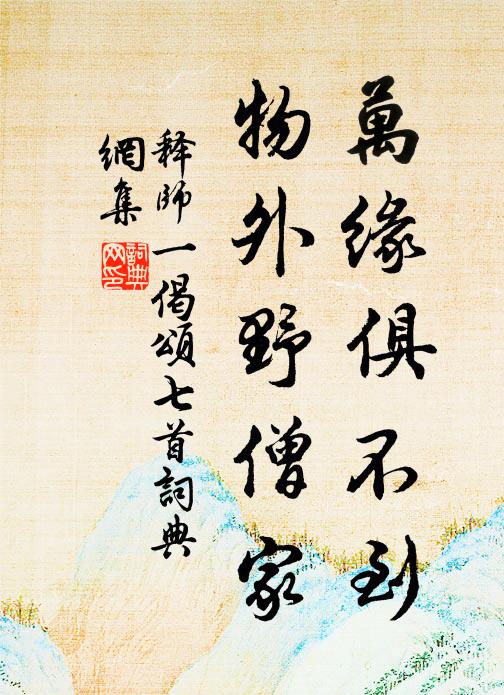 萬緣俱不到
物外野僧家
释師一偈頌七首詞典
網集
詞典
网印